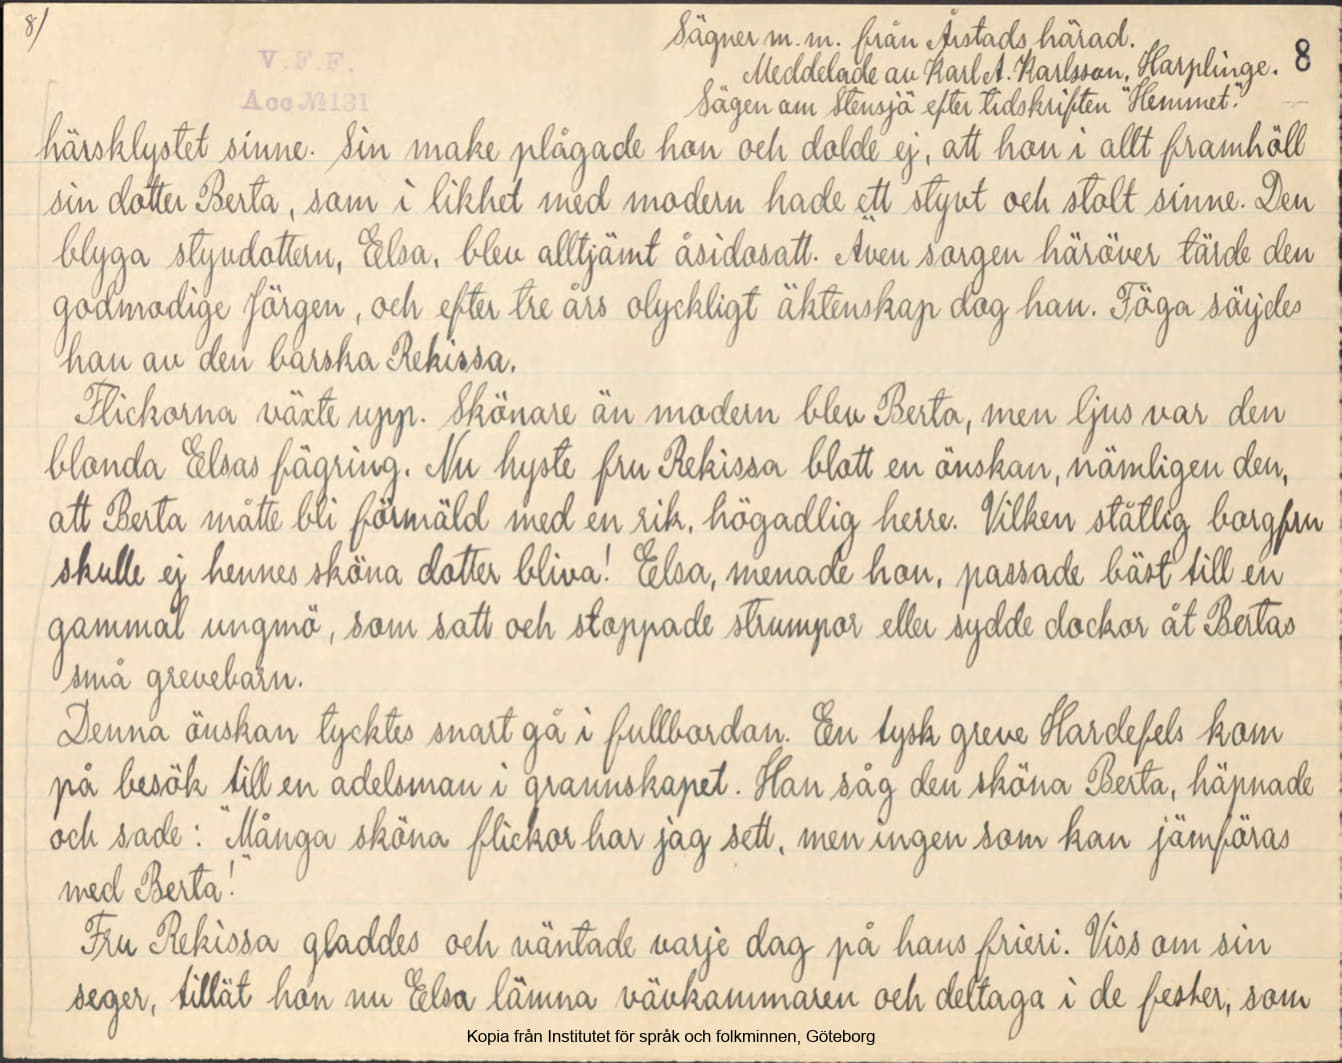 8/
Sägner m.m. från Årstads härad.
Meddelade av Karl A. Karlsson, Harplinge.
8
V.F.F.
Acc №131
Sägen om Stensjö efter tidskriften "Hemmet".
härsklystet sinne. Sin make plågade hon och dolde ej, att hon i allt framhöll
sin dotter Berta, som i likhet med modern hade ett styvt och stolt sinne. Den
blyga styvdottern, Elsa, blev alltjämt åsidosatt. Även sorgen häröver tärde den
godmodige Jörgen, och efter tre års olyckligt äktenskap dog han. Föga sörjdes
han av den barska Rekissa.
Flickorna växte upp. Skönare än modern blev Berta, men ljus var den
blonda Elsas fägring. Nu hyste fru Rekissa blott en önskan, nämligen den,
att Berta måtte bli förmäld med en rik, högadlig herre. Vilken ståtlig borgfru
skulle ej hennes sköna dotter bliva! Elsa, menade hon, passade bäst till en
gammal ungmö, som satt och stoppade strumpor eller sydde dockor åt Bertas
små grevebarn.
Denna önskan tycktes snart gå i fullbordan. En tysk greve Hardefels kom
på besök till en adelsman i grannskapet. Han såg den sköna Berta, häpnade
och sade: "Många sköna flickor har jag sett, men ingen som kan jämföras
med Berta!"
Fru Rekissa gladdes och väntade varje dag på hans frieri. Viss om sin
seger, tillät hon nu Elsa lämna vävkammaren och deltaga i de fester, som
Kopia från Institutet för språk och folkminnen, Göteborg